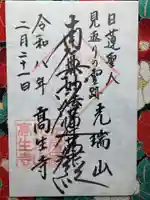 日蓮聖人
見返りの霊跡
光瑞山
南無妙法蓮華経
高生寺
令和八年
二月二十一日